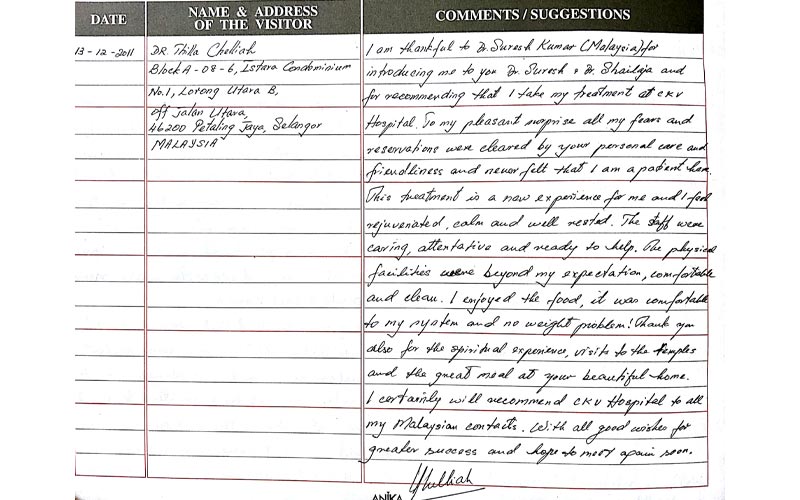 DATE
NAME & ADDRESS
OF THE VISITOR
COMMENTS / SUGGESTIONS
13-12-2011
DR. Thilla Chelliah
Block A-08-6, Istara Condominium
No.1, Lorong Utara B,
off Jalan Utara,
46200 Petaling Jaya, Selangor
MALAYSIA
I am thankful to Dr. Suresh Kumar (Malaysia) for
introducing me to you Dr. Suresh & Dr. Shailaja and
for recommending that I take my treatment at CKV
Hospital. To my pleasant surprise all my fears and
reservations were cleared by your personal care and
friendliness and never felt that I am a patient here.
This treatment is a new experience for me and I feel
rejuvenated, calm and well rested. The staff were
caring, attentative and ready to help. The physical
facilities were beyond my expectation, comfortable
and clean. I enjoyed the food, it was comfortable
to my system and no weight problem! Thank you
also for the spiritual experience, visits to the temples
and the great meal at your beautiful home.
I certainly will recommend CKV Hospital to all
my Malaysian contacts. With all good wishes for
greater success and hope to meet again soon.
Chelliah
ANIKA